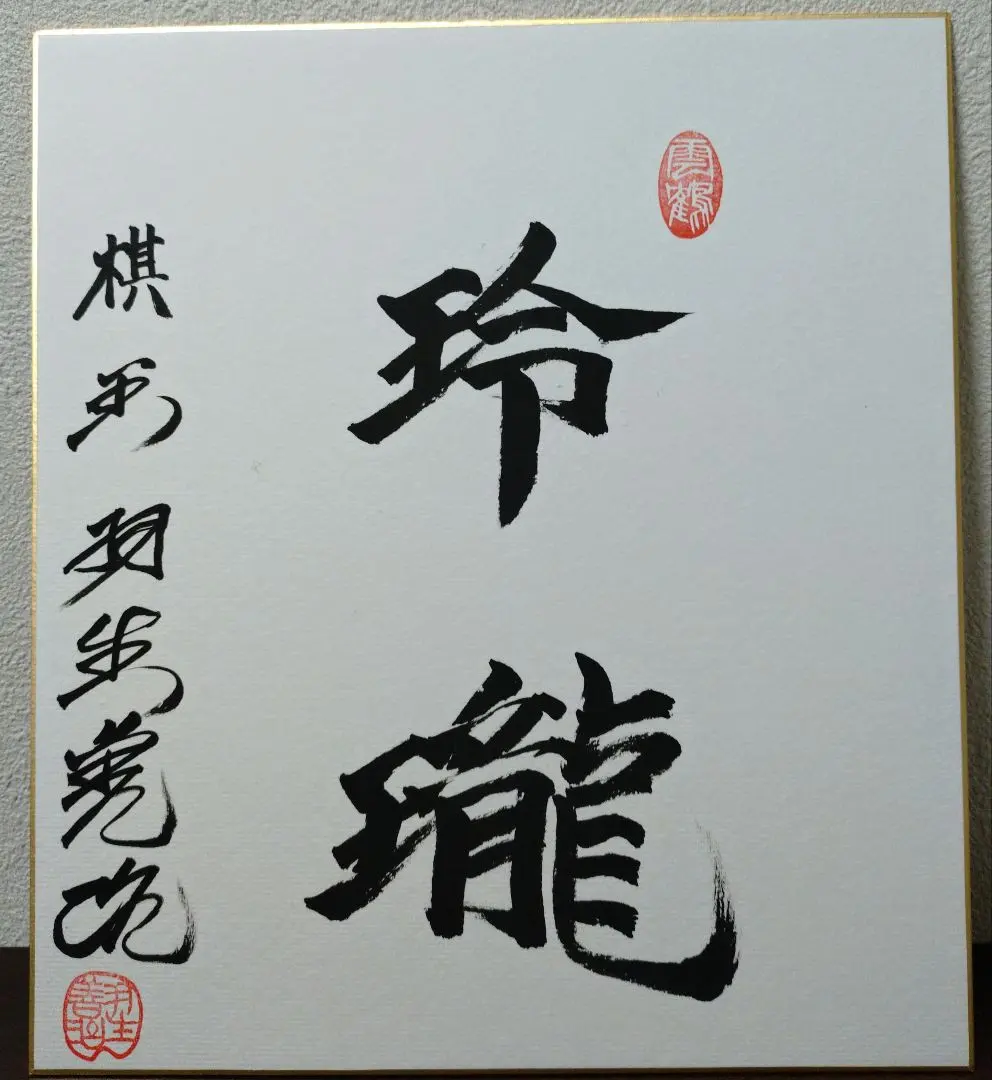 雲鶴
玲瓏
棋聖 羽生善治
羽生善治